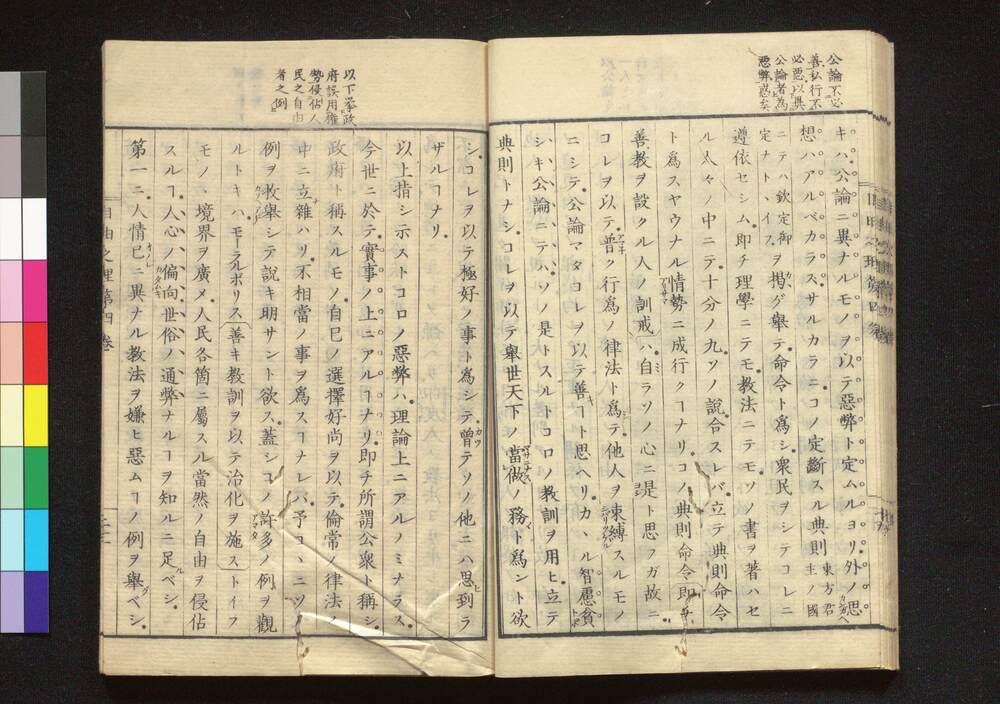 公論不必
善私行不
必惡以異
公論者為
惡弊惑矣
キハ公論ニ異ナルモノヲ以テ惡弊ト定ムルヨリ外ノ思
想ハアルベカラズサルカラニコノ定斷スル典則東方君主ノ國
ニテハ欽定御定ナトヽイフヲ掲グ擧テ命令ト為シ衆民ヲシテコレニ
遵依セシム即チ理學ニテモ教法ニテモソノ書ヲ著ハセ
ル人々ノ中ニテ十分ノ九ソノ説合スレバ立テ典則命令
ト為スヤウナル情勢ニ成行クヿナリコノ典則命令即チ
善教ヲ設クル人ノ訓戒ハ自ラソノ心ニ是ト思フガ故ニ
コレヲ以テ普ク行為ノ律法ト為テ他人ヲ束縛スルモノ
ニシテ公論マタコレヲ以テ善キヿト思ヘリカヽル智愚貧
シキ公論ニテハソノ是トスルトコロノ教訓ヲ用ヒ立テ
典則トナシコレヲ以テ擧世天下ノ當做ノ務ト為ント欲
以下擧政
府誤用權
勢侵佔人
民之自由
者之例
シコレヲ以テ極好ノ事ト為シテ曾テソノ他ニハ思到ラ
ザルヿナリ
以上指シ示ストコロノ惡弊ハ理論上ニアルノミナラス
今世ニ於テ實事ノ上ニアルヿナリ即チ所謂公衆ト稱シ
政府ト稱スルモノ自已ノ選擇好尚ヲ以テ倫常ノ律法ノ
中ニ立雜ハリ不相當ノ事ヲ為スヿナレバ予コヽニソノ
例ヲ枚擧シテ説キ明サント欲ス蓋シコノ許多ノ例ヲ觀
ルトキハモーラルポリス善キ教訓ヲ以テ治化ヲ施ストイフ
モノヽ境界ヲ廣メ人民各箇ニ屬スル當然ノ自由ヲ侵佔
スルヿ人心ノ偏向世俗ノ通弊ナルヿヲ知ルニ足ルベシ
第一ニ人情已ニ異ナル教法ヲ嫌ヒ惡ムヿノ例ヲ擧グベシ
自由之理第四卷